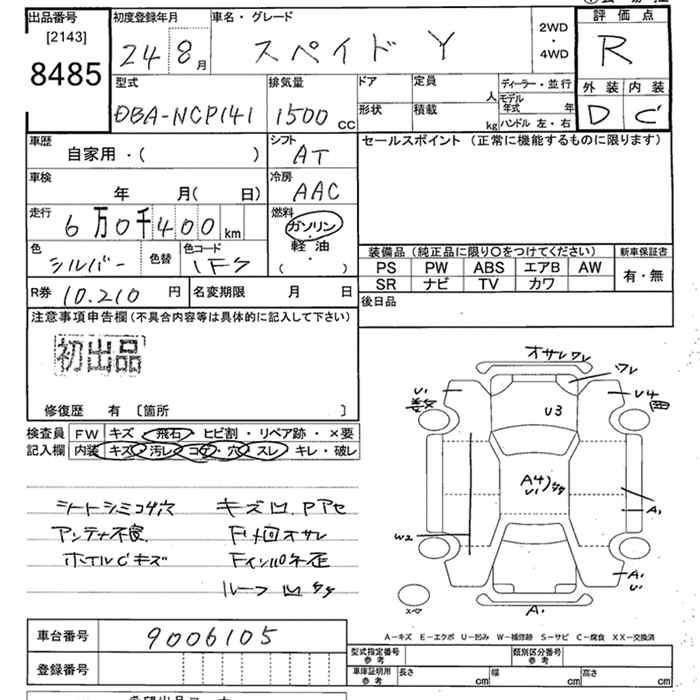 出品番号
[2143]
8485
初度登録年月
24 8月
車名・グレード
スペイド Y
2WD
・
4WD
評価点
R
外装 内装
D C
型式
DBA-NCP141
排気量
1500 CC
ドア
形状
定員
人
積載
kg
ディーラー・並行
モデル
年式 年
ハンドル 左・右
車歴
自家用・( )
シフト
AT
車検
年 月( 日)
冷房
AAC
走行
6万0千400 km
燃料
ガソリン
・
軽油
( )
色
シルバー
色替
色コード
1F7
セールスポイント (正常に機能するものに限ります)
装備品 (純正品に限り○をつけてください)
PS PW ABS エアB AW
SR ナビ TV カワ
新車保証書
有・無
R券 10.210 円
名変期限 月 日
後日品
注意事項申告欄(不具合内容等は具体的に記入して下さい)
初出品
修復歴 有 〔箇所 〕
検査員
記入欄
FW キズ・飛石・ヒビ割・リペア跡・×要
内装 キズ・汚レ・コゲ・穴・スレ・キレ・破レ
シートシミコゲ穴 キズ凹.Pアセ
アンテナ不良
ホイルCキズ
ルーフ凹
オサレワレ
ワレ
U1
U4
U3
A4
U1
W2
A1
A1
U
A1
スペア
車台番号 9006105
登録番号
A-キズ E-エクボ U-凹み W-補修跡 S-サビ C-腐食 XX-交換済
型式指定番号
参考
類別区分番号
参考
車庫証明用
参考
長さ cm 幅 cm 高さ cm